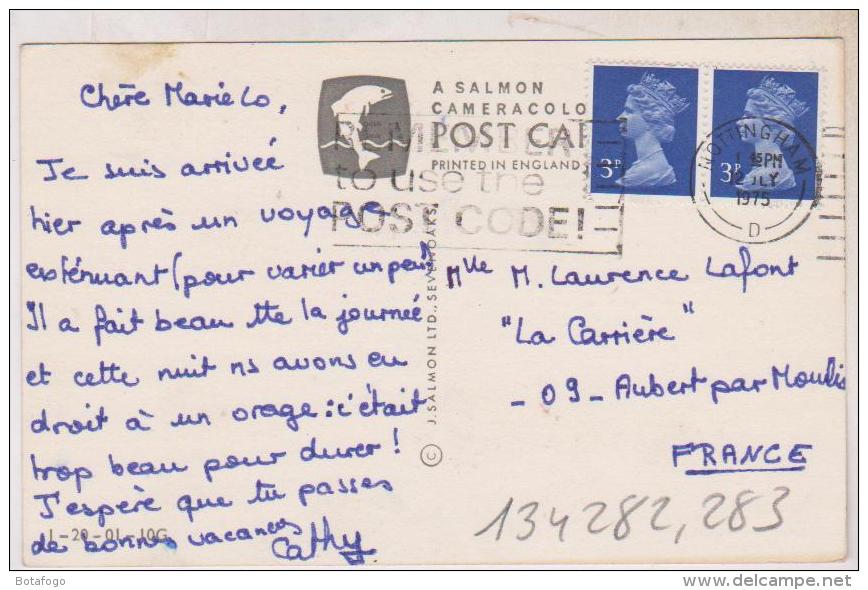 Chère Marielo,
Je suis arrivée
hier après un voyage
exténuant (pour varier un peu!)
Il a fait beau tte la journée
et cette nuit ns avons eu
droit à un orage : c'était
trop beau pour durer !
J'espère que tu passes
de bonnes vacances
Cathy
1-20-01-10G
A SALMON
CAMERACOLO
POST CAR
PRINTED IN ENGLAND
© J. SALMON LTD., SEVENOAKS
REMEMBER
to use the
POST CODE!
3P
3P
NOTTINGHAM
45PM
12 JLY
1975
D
Mlle M. Laurence Lafont
"La Carrière"
- 09 - Aubert par Moulis
FRANCE
134282,283
Botafogo
www.delcampe.net